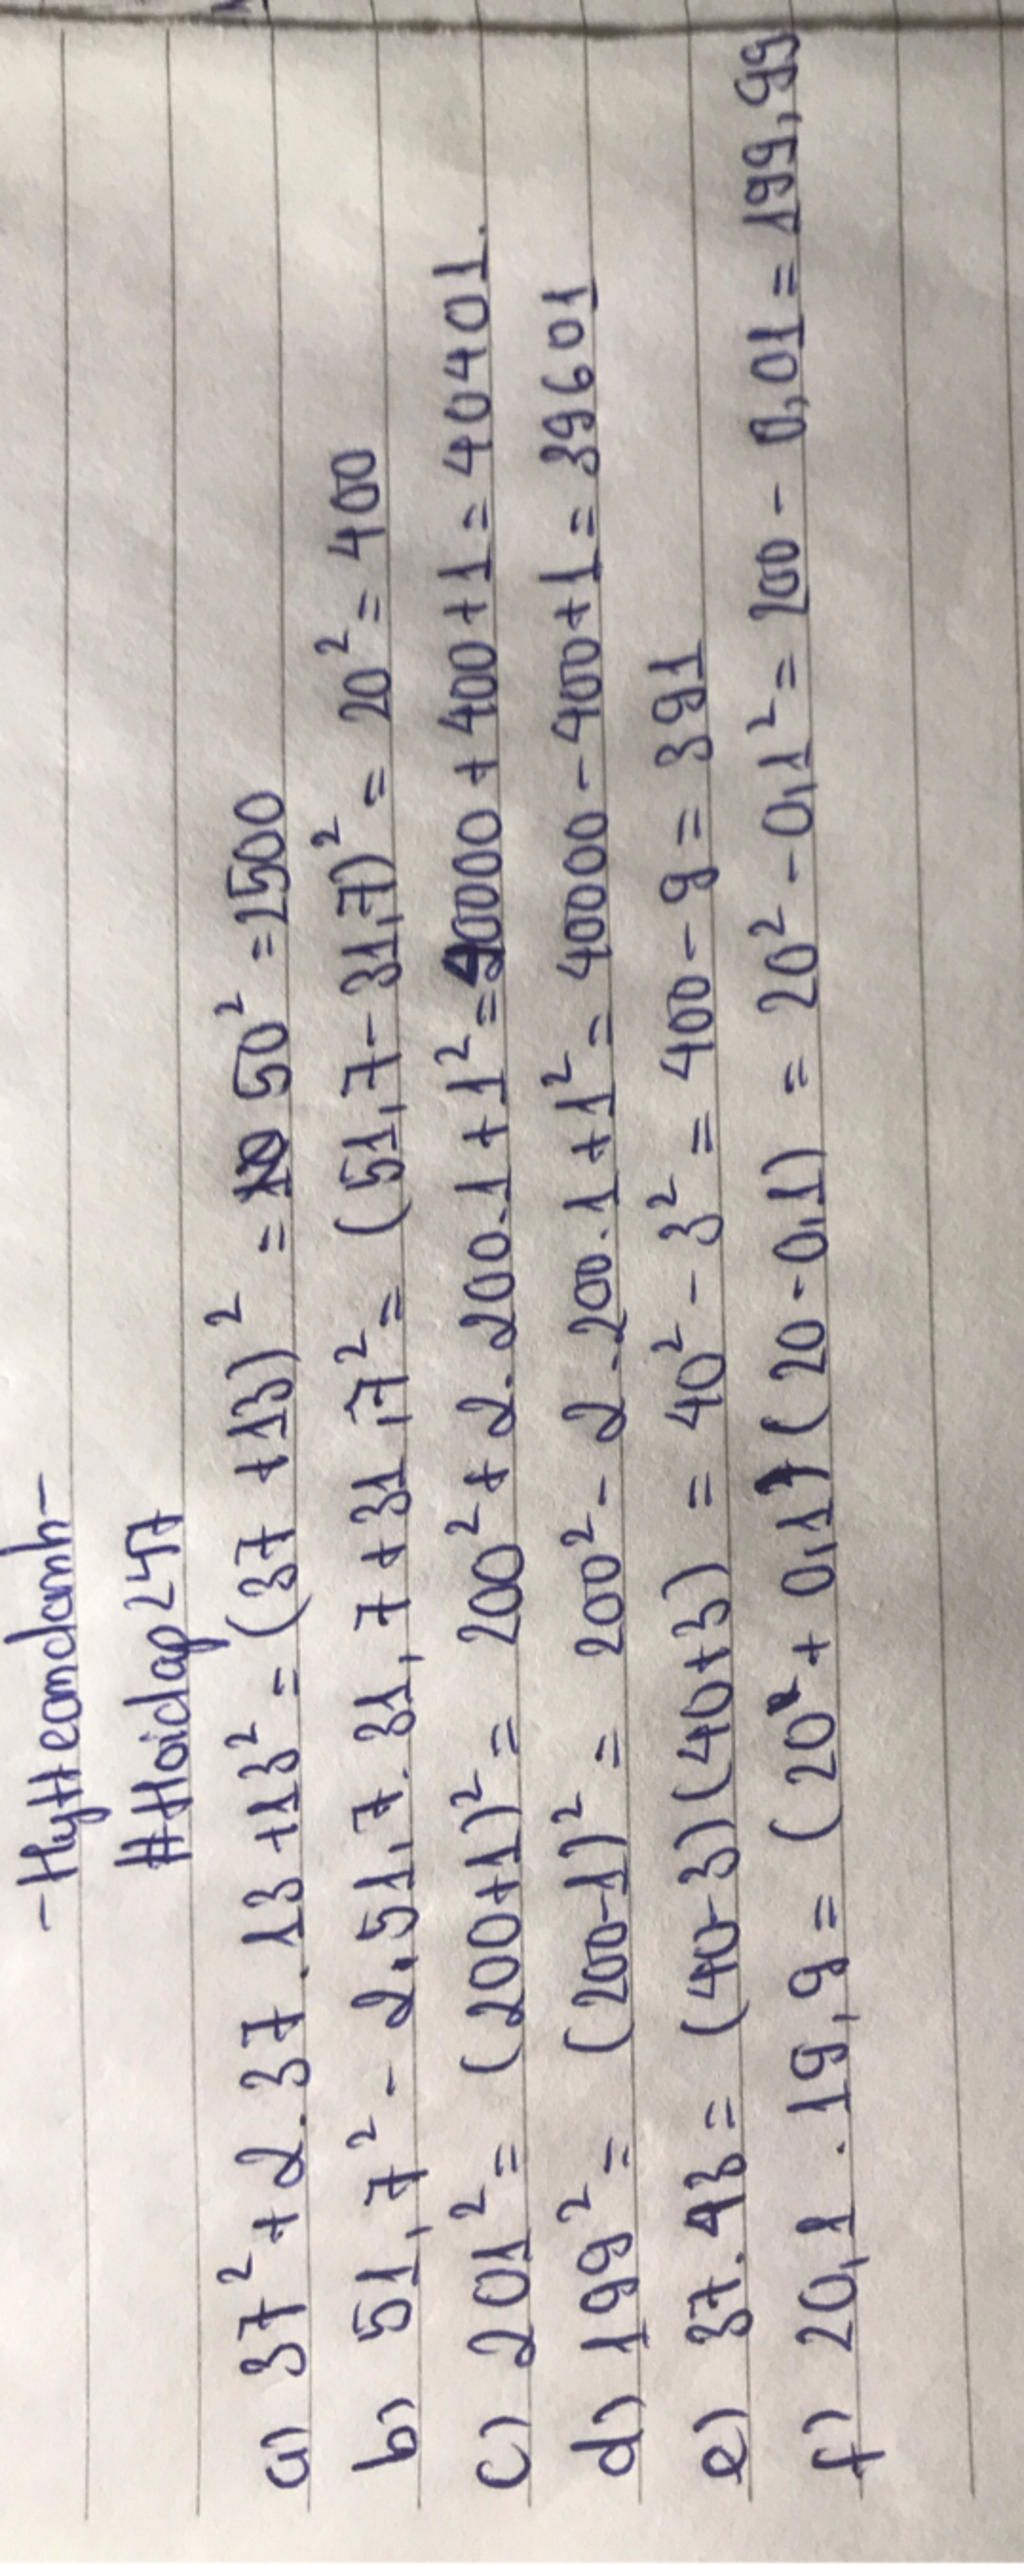 -HyHeomdamh-
#Hoidap247
a) 37² + 2.37.13 + 13² = (37 + 13)² = 50² = 2500
b) 51,7² - 2.51,7.31,7 + 31,7² = (51,7 - 31,7)² = 20² = 400
c) 201² = (200+1)² = 200² + 2.200.1 + 1² = 40000 + 400 + 1 = 40401.
d) 199² = (200-1)² = 200² - 2.200.1 + 1² = 40000 - 400 + 1 = 39601
e) 37.43 = (40-3)(40+3) = 40² - 3² = 400 - 9 = 391
f) 20,1.19,9 = (20 + 0,1)(20 - 0,1) = 20² - 0,1² = 200 - 0,01 = 199,99